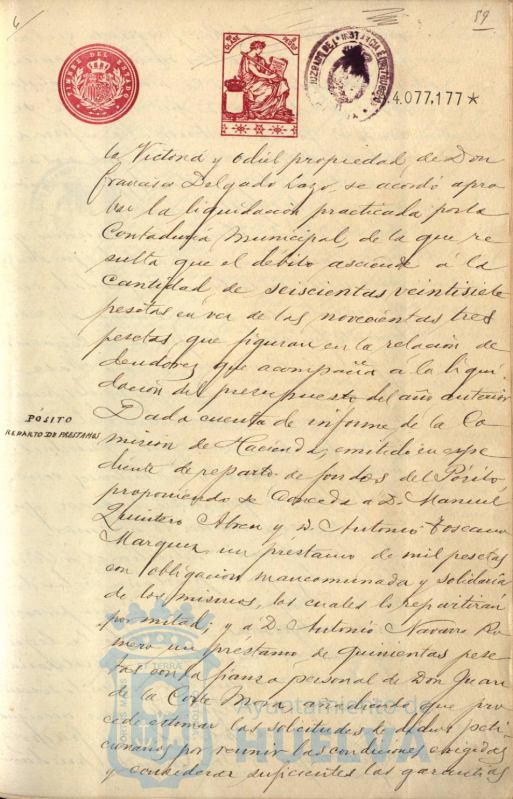 4
59
TIMBRE DEL ESTADO
4.077,177 *
la Victoria y Odiel propiedad, de Don
Francisco Delgado Lazo, se acordó apro
bar la liquidación practicada por la
Contaduría Municipal, de la que re
sulta que el débito asciende á la
cantidad de seiscientas veintisiete
pesetas en vez de las novecientas tres
pesetas que figuran en la relación de
deudores que acompaña a la liqui
dación del presupuesto del año anterior
PÓSITO
REPARTO DE PRESTAMOS
Dada cuenta de informe de la Co
misión de Hacienda, emitido en expe
diente de reparto de fondos del Pósito,
proponiendo se conceda a D. Manuel
Quintero Abreu y D. Antonio Toscano
Marquez un préstamo de mil pesetas
con obligación mancomunada y solidaria
de los mismos, los cuales lo repartirán
por mitad; y a D. Antonio Navarro Ro
mero un préstamo de quinientas pese
tas con la fianza personal de Don Juan
de la Corte añadiendo que pro
cede estimar las solicitudes de dichos peti
cionarios por reunir las condiciones exigidas
y considerar suficientes las garantías
Ayuntamiento de
HUELVA